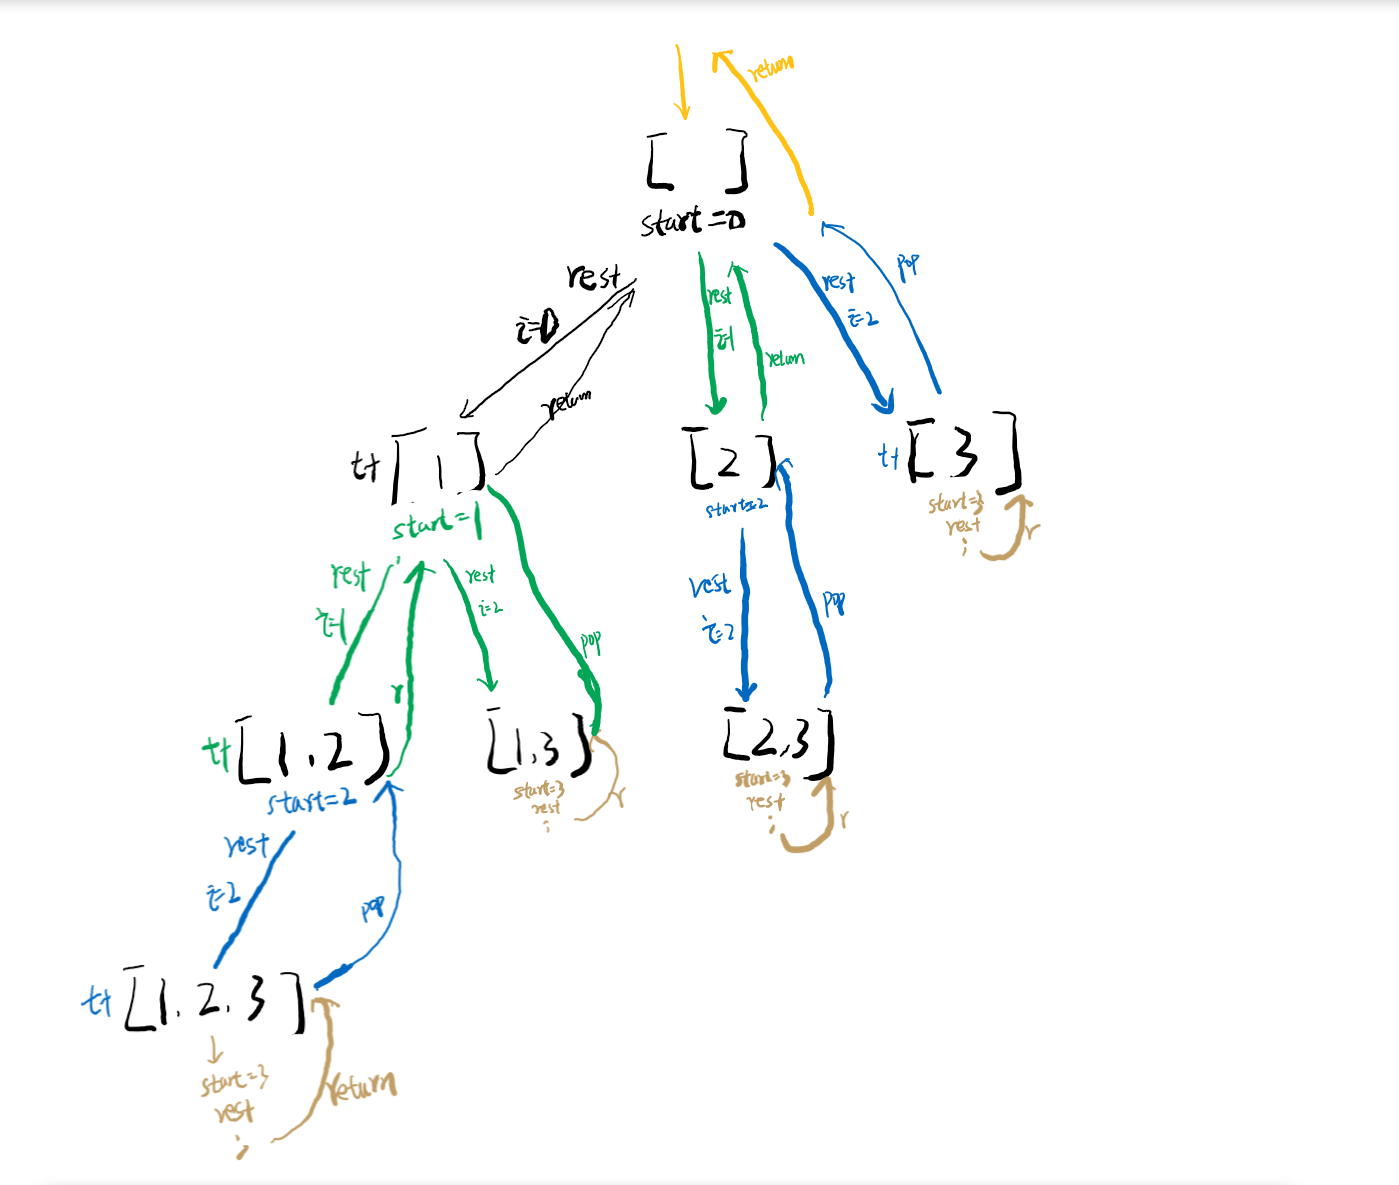 return
[ ]
start=0
rest
i=0
return
rest
i=1
return
rest
i=2
pop
tt [ 1 ]
start=1
[ 2 ]
start=2
tt [ 3 ]
start=3
rest
;
r
rest
i=1
r
rest
i=2
pop
rest
i=2
pop
tt [1,2]
start=2
[1,3]
start=3
rest
;
r
[2,3]
start=3
rest
;
r
rest
i=2
pop
tt [1,2,3]
start=3
rest
;
return